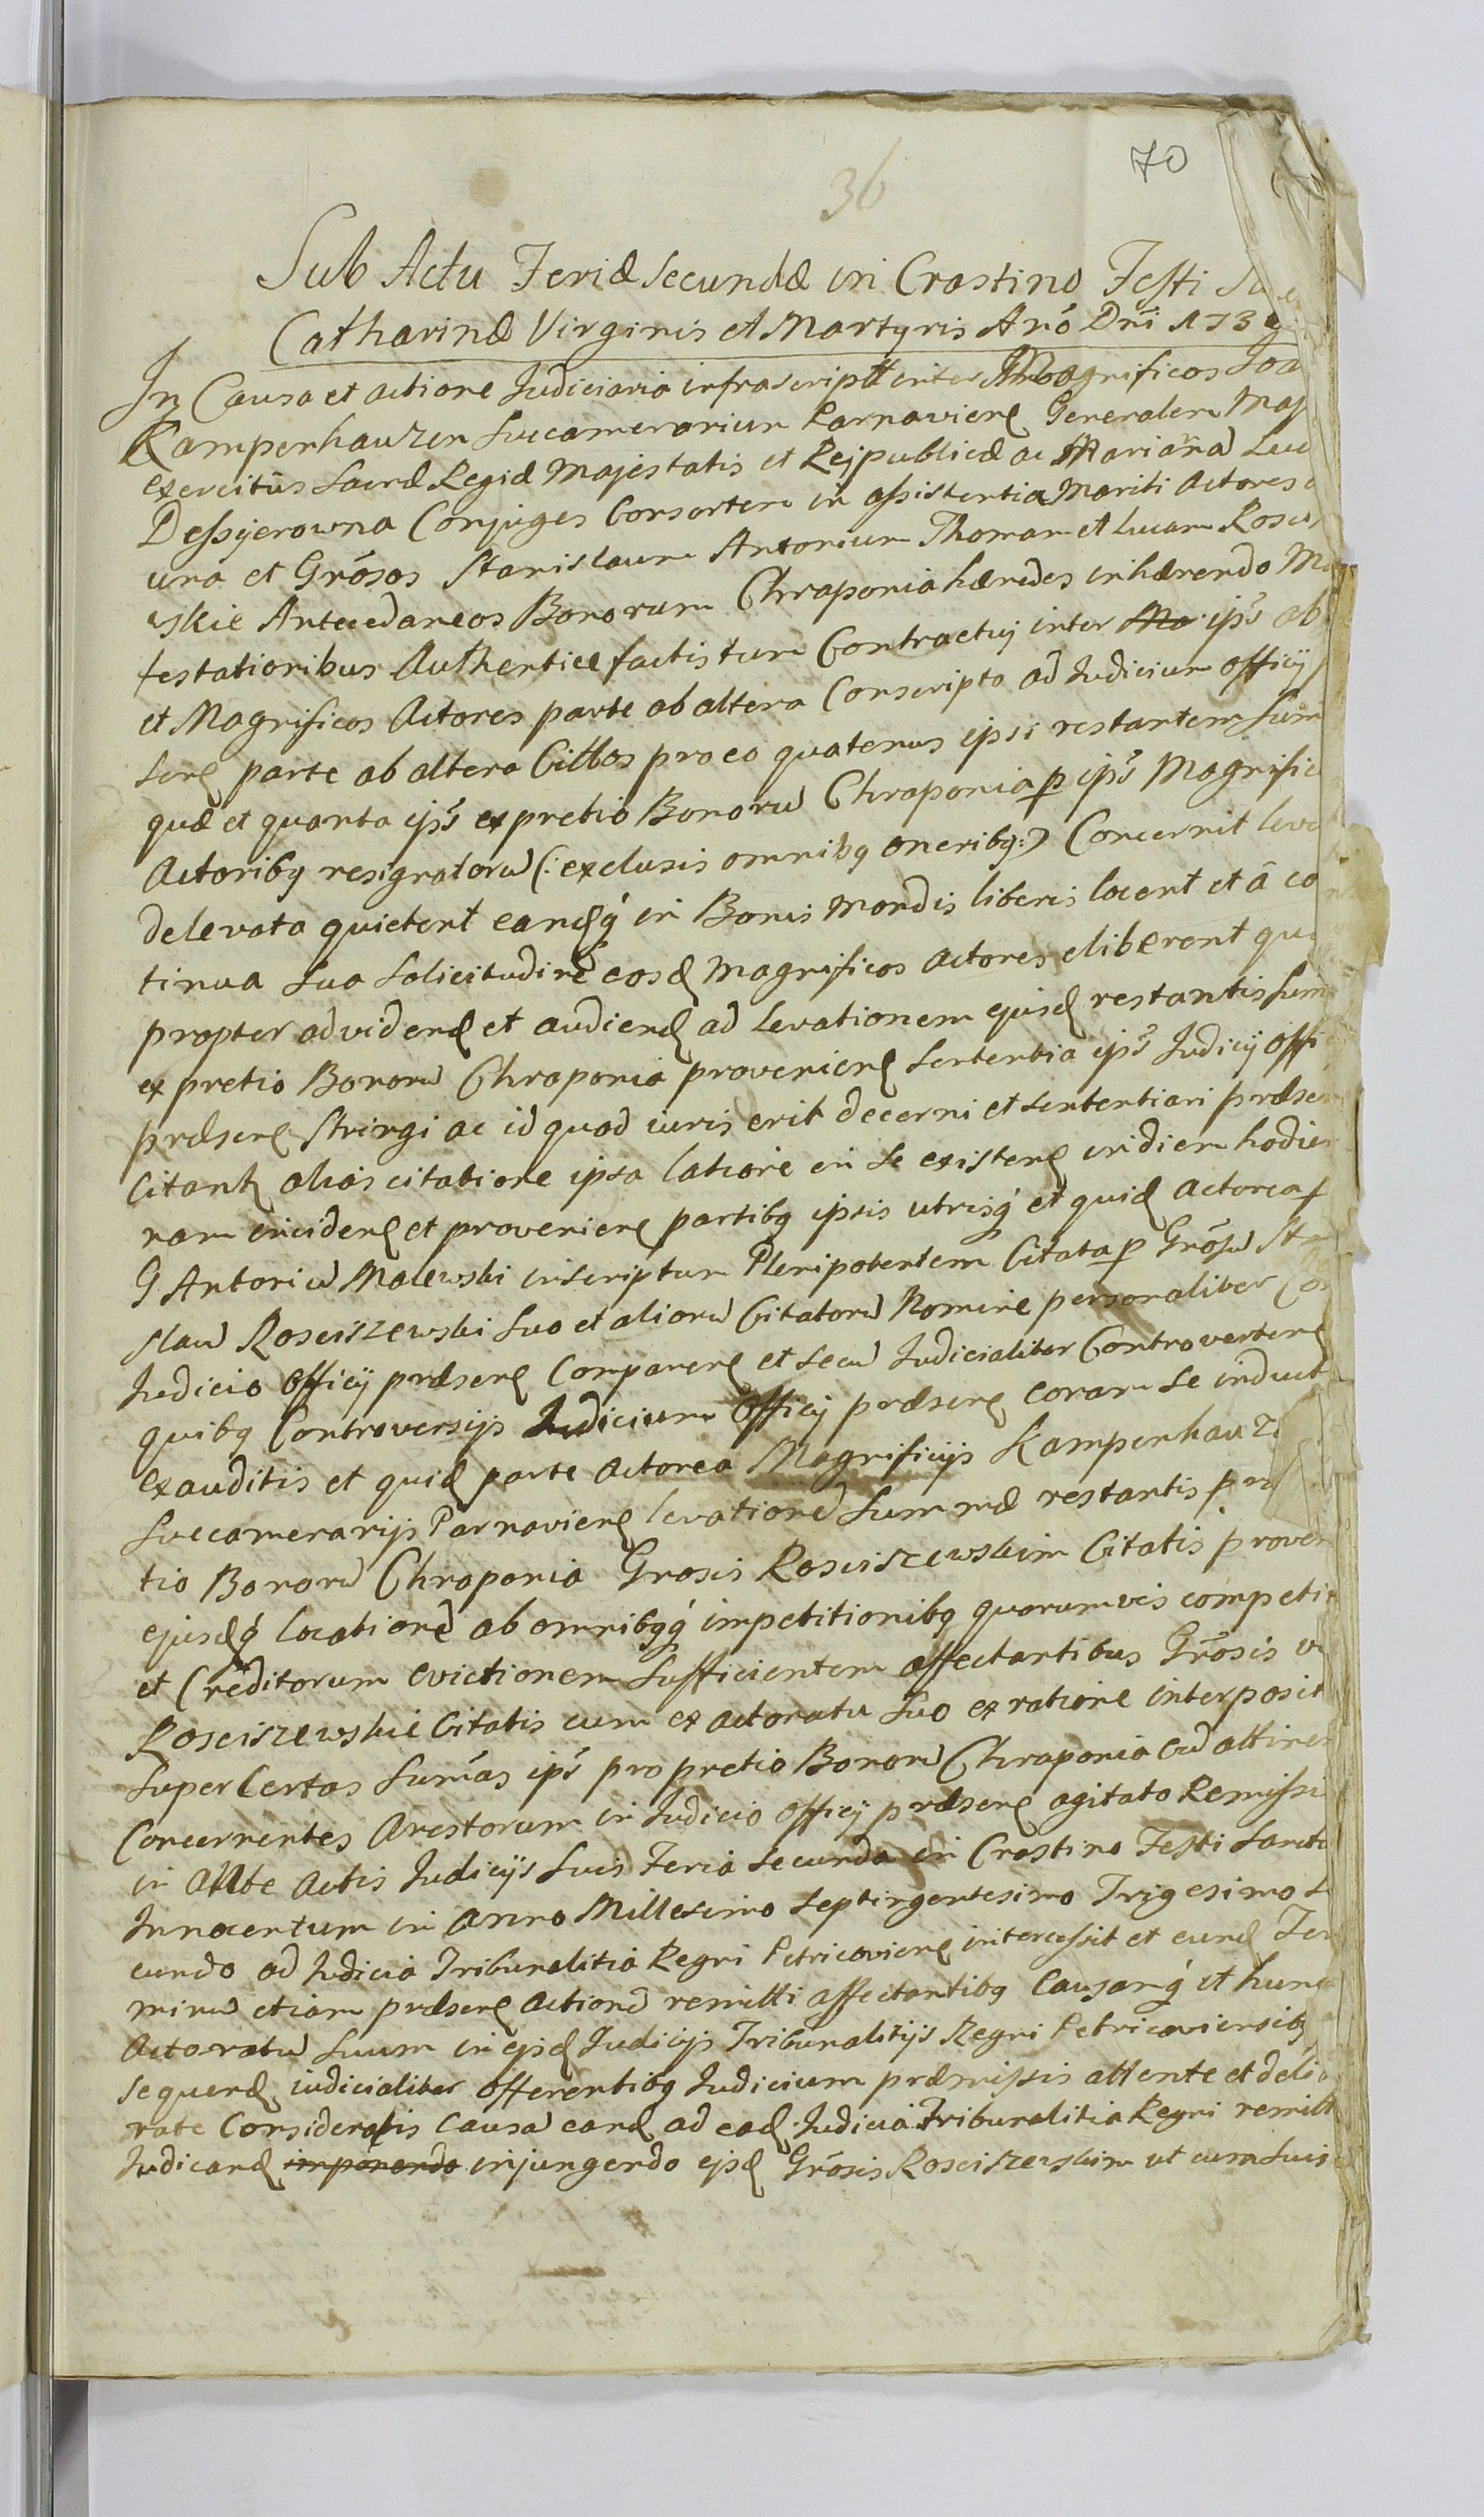 70
36
Sub Actu Feriæ Secundæ in Crastino Festi
Catharinæ Virginis et Martyris Anō Dni 173
In Causa et actione Judiciaria infrascriptt inter Magnificos Joa
Kampenhauzen Succamerarium Parnavien Generalem Maj
exercitūs Sacræ Regiæ Majestatis et Reipublicæ ac Mariaña Luc
Dessyerowna Conjuges Consortem in assistentia Mariti Actores
una et Grōsos Stanislaum Antonium Thomam et Lucam Rosci
wskie Antecedaneos Bonorum Chraponia hæredes inhærendo M
festationibus Authentice factis tum Contractuj inter ips ab
et Magnificos Actores parte ab altera Conscripto ad Judicium officij
sens parte ab altera Cittos pro eo quatenus ipsi restantem sum
quæ et quanta ips ex pretio Bonorū Chraponia p ips Magnific
Actoribq resignatorū (: exclusis omnibq oneribq :) Concernit leve
delevata quietent eandq́ in Bonis Mondis liberis locent et â co
tinua sua solicitudine eosd Magnificos Actores eliberent qua
propter ad videnđ et audienđ ad levationem ejusđ restantis sum
ex pretio Bonorū Chraponia provenien Sententia ips Judicij offi
præsen stringi ac id quod iuris erit decerni et sententiari præsen
Citant alias citatione ipsa latiore in se existen in diem hodier
nam inciden et provenien partibq ipsis utrisq́ et quiđ actorea p
G. Antoniū Malewski inscriptum Plenipotentem Citata p Grōsū Sta
slaū Rosciszewski suo et aliorū Citatorū Nomine personaliter Cor
Judicio Officij præsen Comparen et secū Judicialiter Controverten
quibq Controversijs Judicium Officij præsen coram se induct
exauditis et quiđ parte actorea Magnificijs Kampenhauz
Succamerarijs Parnavien levationē Summæ restantis pre
tio Bonorū Chraponia Grosis Rosciszewskim Citatis proven
ejusdq́ locationē ab omnibqq́ impetitionibq quorumvis competi
et Creditorum evictionem sufficientem affectantibus Grōsis v
Rosciszewskie Citatis cum ex actoratu suo ex ratione interposit
super Certas Sumas ips pro pretio Bonorū Chraponia cū attinen
Concernentes Arestorum in Judicio officij præsen agitato Remissi
in Actis Judicijs suis Feria Secunda in Crastino Festi Sancto
Innocentum in anno Millesimo Septingentesimo Trigesimo Se
cundo ad Judicia Tribunalitia Regni Petricovien intercessit et eunđ Ter
minū etiam præsen actionē remitti affectantibq Causamq́ et hunc
Actoratū suum in ejsđ Judicijs Tribunalitijs Regni Petricoviensibq
sequenđ iudicialiter offerentibq Judicium præmissis attente et delibe
rate Consideratis Causā eanđ ad eađ Judicia Tribunalitia Regni remitt
Judicanđ imponendo injungendo ejsđ Grōsis Rosciszewskim ut cum suis